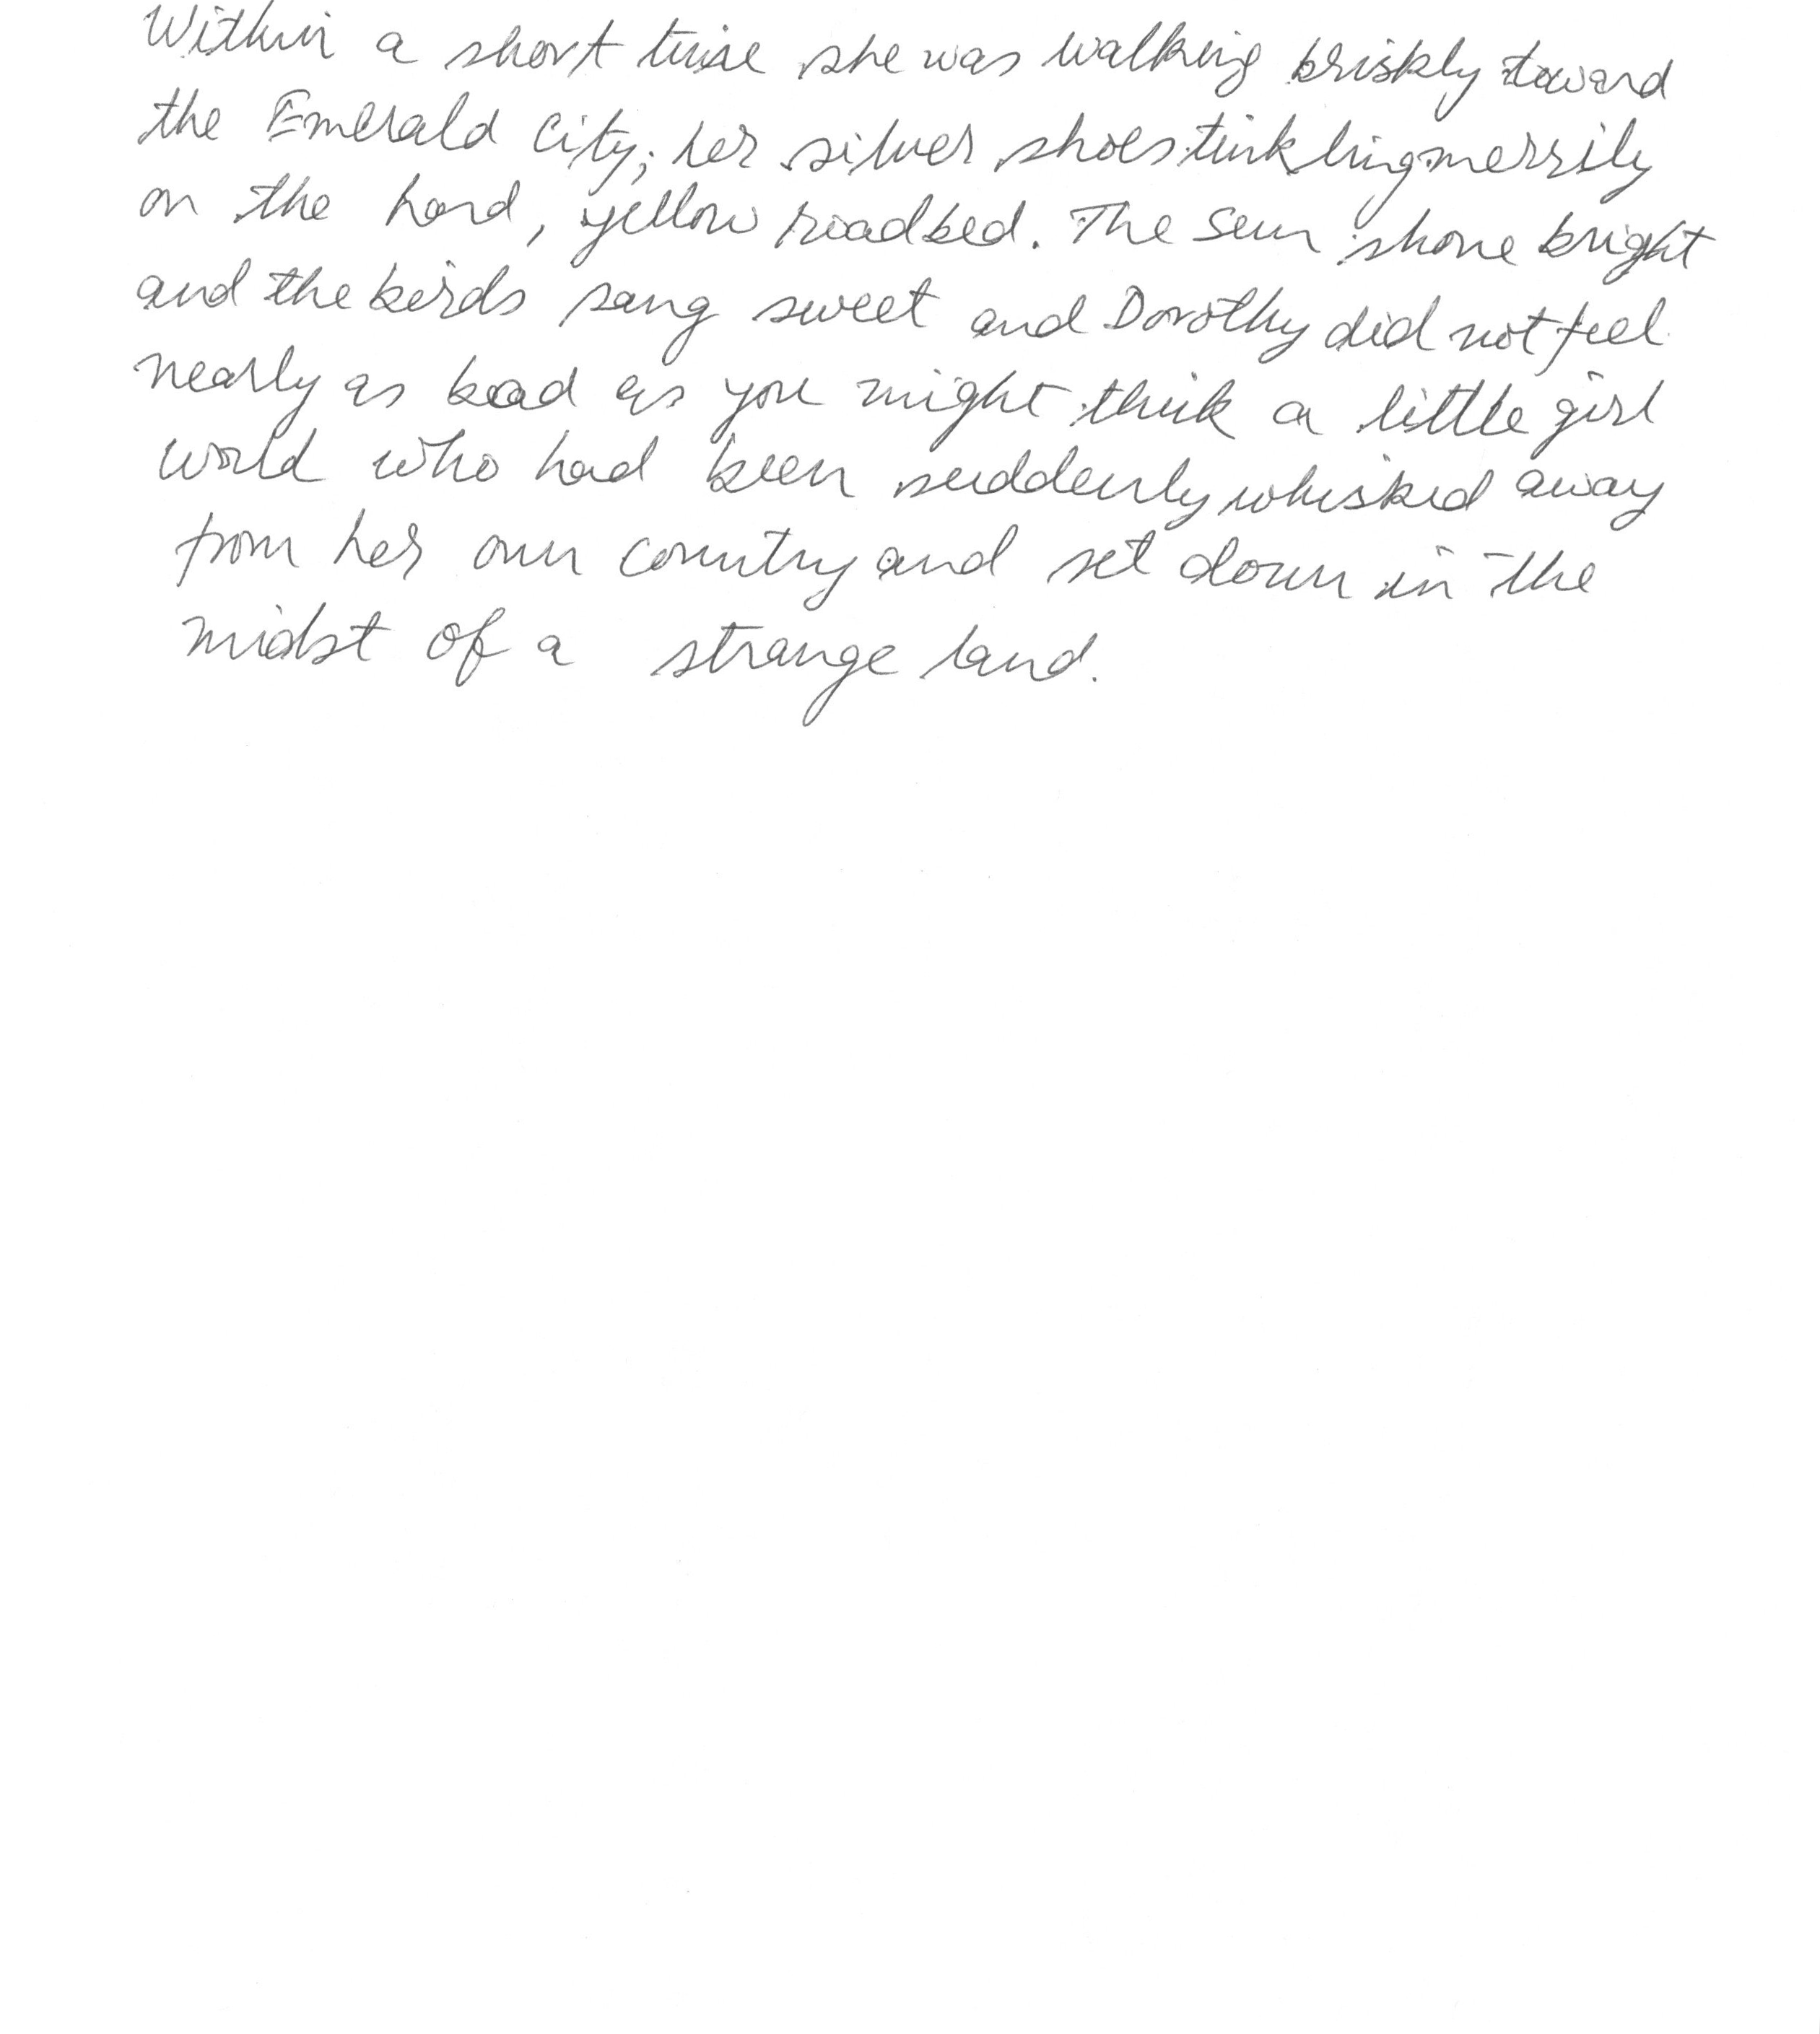 Within a short time she was walking briskly toward
the Emerald City; her silver shoes tinkling merrily
on the hard, yellow roadbed. The sun shone bright
and the birds sang sweet and Dorothy did not feel
nearly as bad as you might think a little girl
would who had been suddenly whisked away
from her own country and set down in the
midst of a strange land.